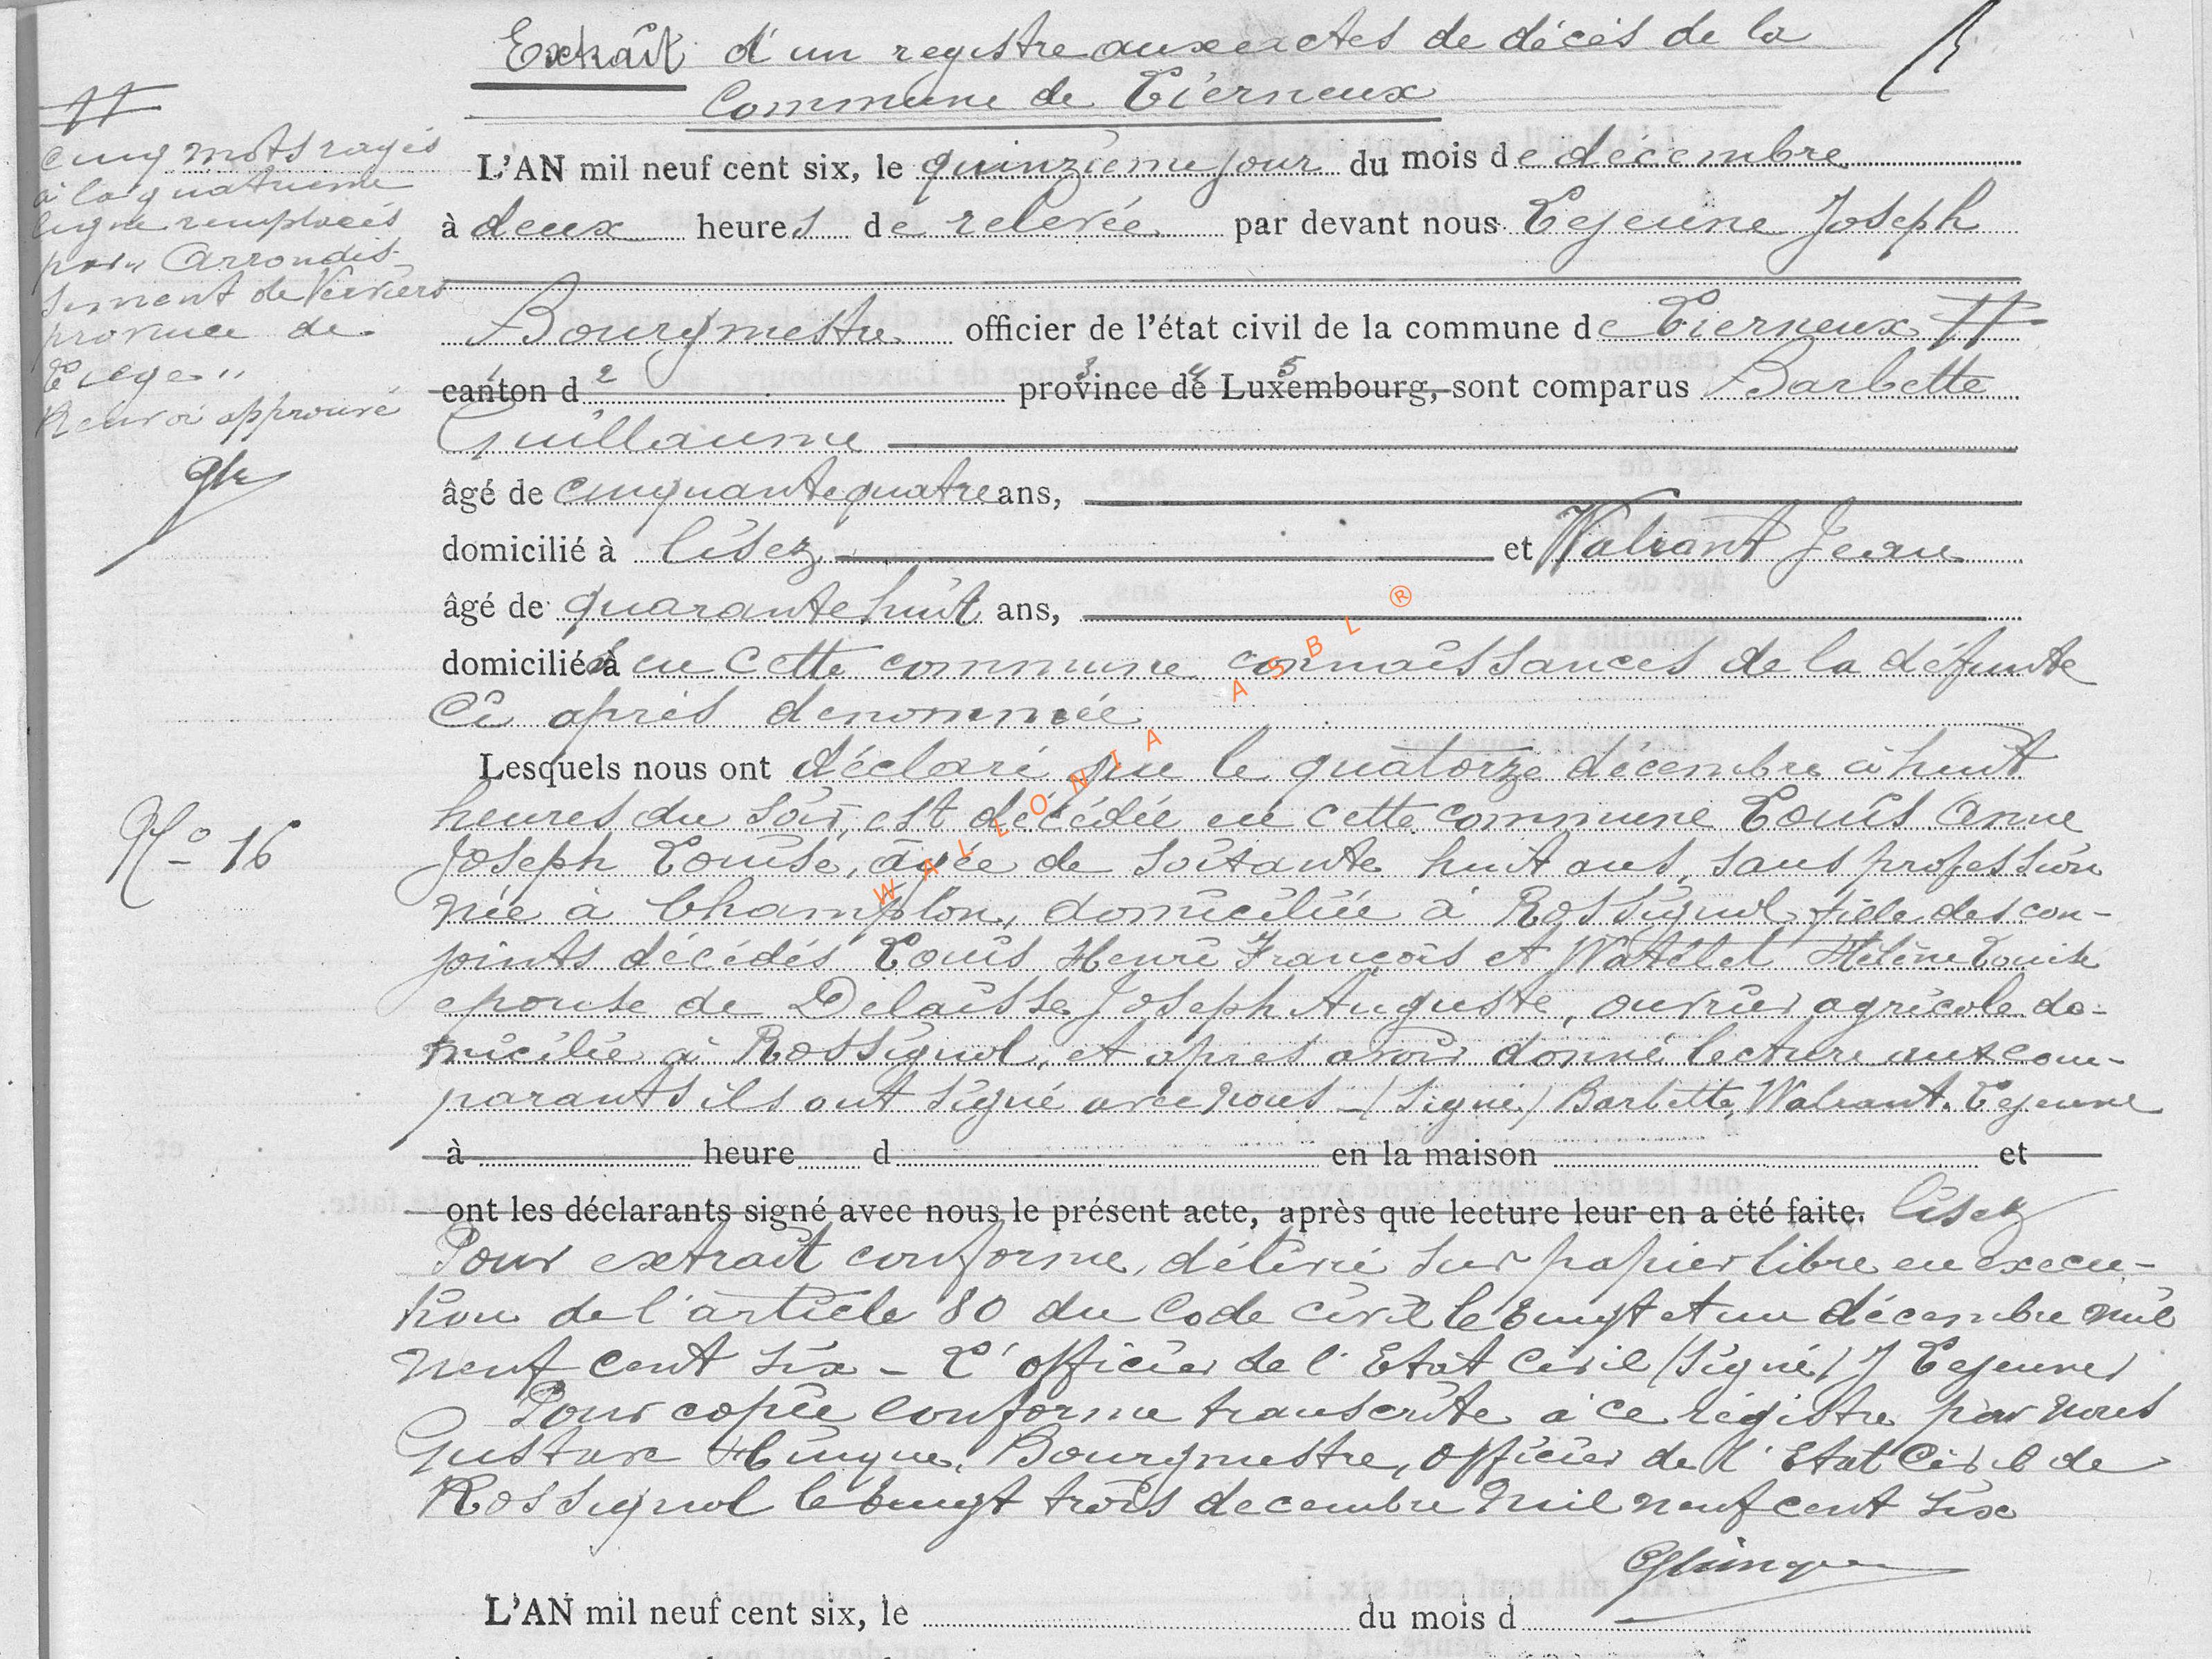 Extrait d'un registre aux actes de décès de la
Commune de Lierneux
L'AN mil neuf cent six, le quinzième jour du mois de décembre
à deux heures de relevée par devant nous Lejeune Joseph
Bourgmestre officier de l'état civil de la commune de Lierneux #
canton d 2 province de Luxembourg, 3 4 5 sont comparus Barbette
Guillaume
âgé de cinquante quatre ans,
domicilié à Lisez et Walrant Jean
âgé de quarante huit ans,
domiciliés à en cette commune connaissances de la défunte
ci après dénommée
Lesquels nous ont déclaré que le quatorze décembre à huit
heures du soir, est décédée en cette commune Louis Anne
Joseph Louise, âgée de soixante huit ans, sans profession
née à Champlon, domiciliée à Rossignol fille des con-
joints décédés Louis Henri François et Watelet Hélène Louise
epouse de Delaisse Joseph Auguste, ouvrier agricole do-
micilié à Rossignol, et apres avoir donné lecture aux com-
parants ils ont signé avec nous - (Signé) Barbette, Walrant. Lejeune
à heure d en la maison et
ont les déclarants signé avec nous le présent acte, après que lecture leur en a été faite. Lisez
Pour extrait conforme, délivré sur papier libre en execu-
tion de l'article 80 du Code civil le vingt et un décembre mil
neuf cent six - L'officier de l'Etat Civil (Signé) J Lejeune)
Pour copie conforme transcrite à ce régistre par nous
Gustave Hinque, Bourgmestre, Officier de l'Etat Civil de
Rossignol le vingt trois decembre mil neuf cent six
GHinque
L'AN mil neuf cent six, le du mois d
#
cinq mots rayés
à la quatrième
ligne remplacés
par "Arrondis-
sement de Verviers
province de
Liège"
Renvoi approuvé
GH
No 16
WALLONIA ASBL ®